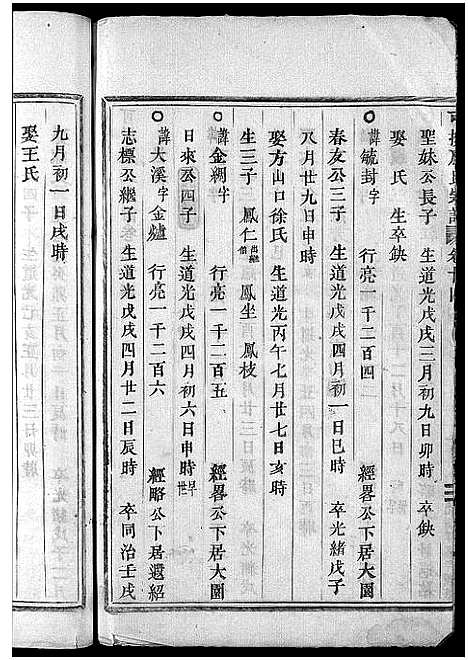 聖妹公長子　生道光戊戌三月初九日卯時　卒缺
娶　氏　生卒缺
諱毓封字　行亮一千二百四　經畧公下居大園
春友公三子　生道光戊戌四月初一日巳時　卒光緒戊子
八月廿九日申時
娶方山口徐氏　生道光丙午七月廿七日亥時
生三子　鳳仁出繼　鳳坐　鳳枝
諱金綱字　行亮一千二百五　經畧公下居大園
日來公四子　生道光戊戌四月初六日申時早世
諱大溪字金爐　行亮一千二百六　經略公下居遗紹
志標公繼子　生道光戊戌四月廿二日辰時　卒同治壬戌
九月初一日戌時
娶王氏